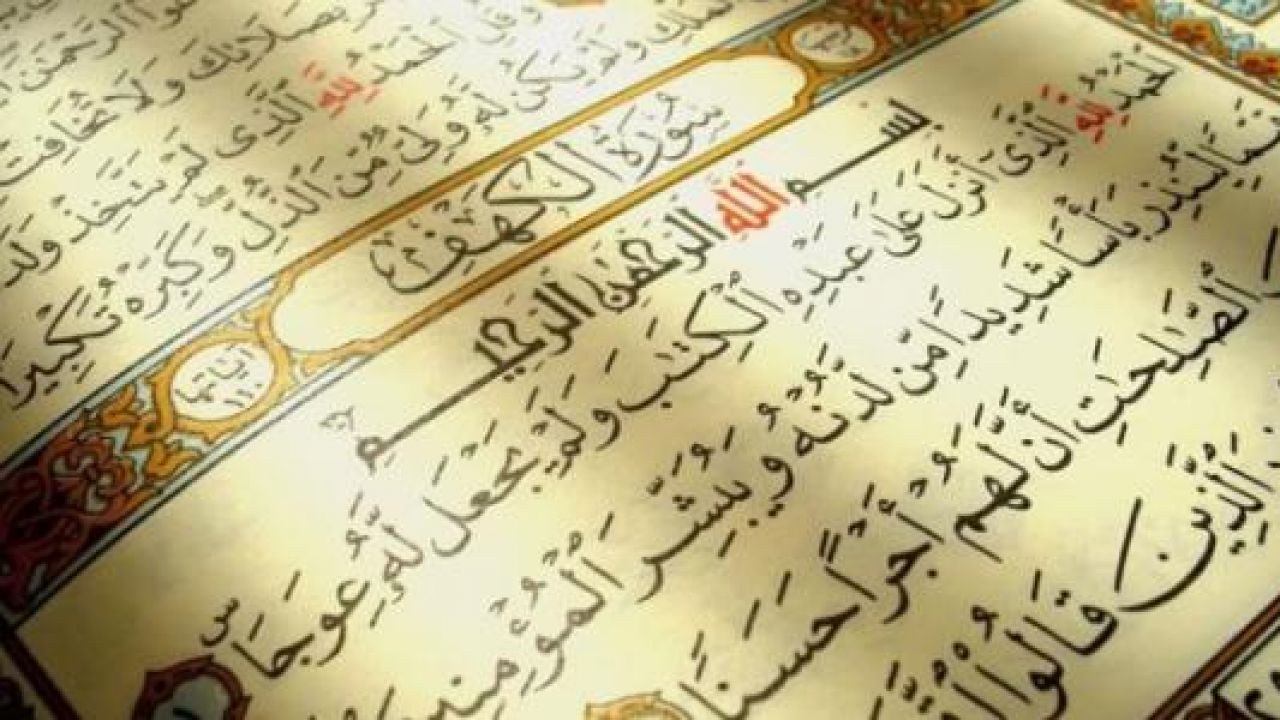 ٱلرَّحْمَٰنَ
بِصَلَاتِكَ وَلَا تُخَافِتْ
وَقُلِ ٱلْحَمْدُ لِلَّهِ ٱلَّذِى لَمْ يَتَّخِذْ
وَلَمْ يَكُن لَّهُۥ وَلِىٌّ مِّنَ ٱلذُّلِّ وَكَبِّرْهُ تَكْبِيرًا
سُورَةُ الكَهْفِ
آيَاتُهَا ١١٠
بِسْمِ ٱللَّهِ ٱلرَّحْمَٰنِ ٱلرَّحِيمِ
ٱلْحَمْدُ لِلَّهِ ٱلَّذِىٓ أَنزَلَ عَلَىٰ عَبْدِهِ ٱلْكِتَٰبَ وَلَمْ يَجْعَل لَّهُۥ عِوَجَا ۜ
قَيِّمًا لِّيُنذِرَ بَأْسًا شَدِيدًا مِّن لَّدُنْهُ وَيُبَشِّرَ ٱلْمُؤْمِنِينَ
ٱلصَّٰلِحَٰتِ أَنَّ لَهُمْ أَجْرًا حَسَنًا
ٱلَّذِينَ قَالُوا۟